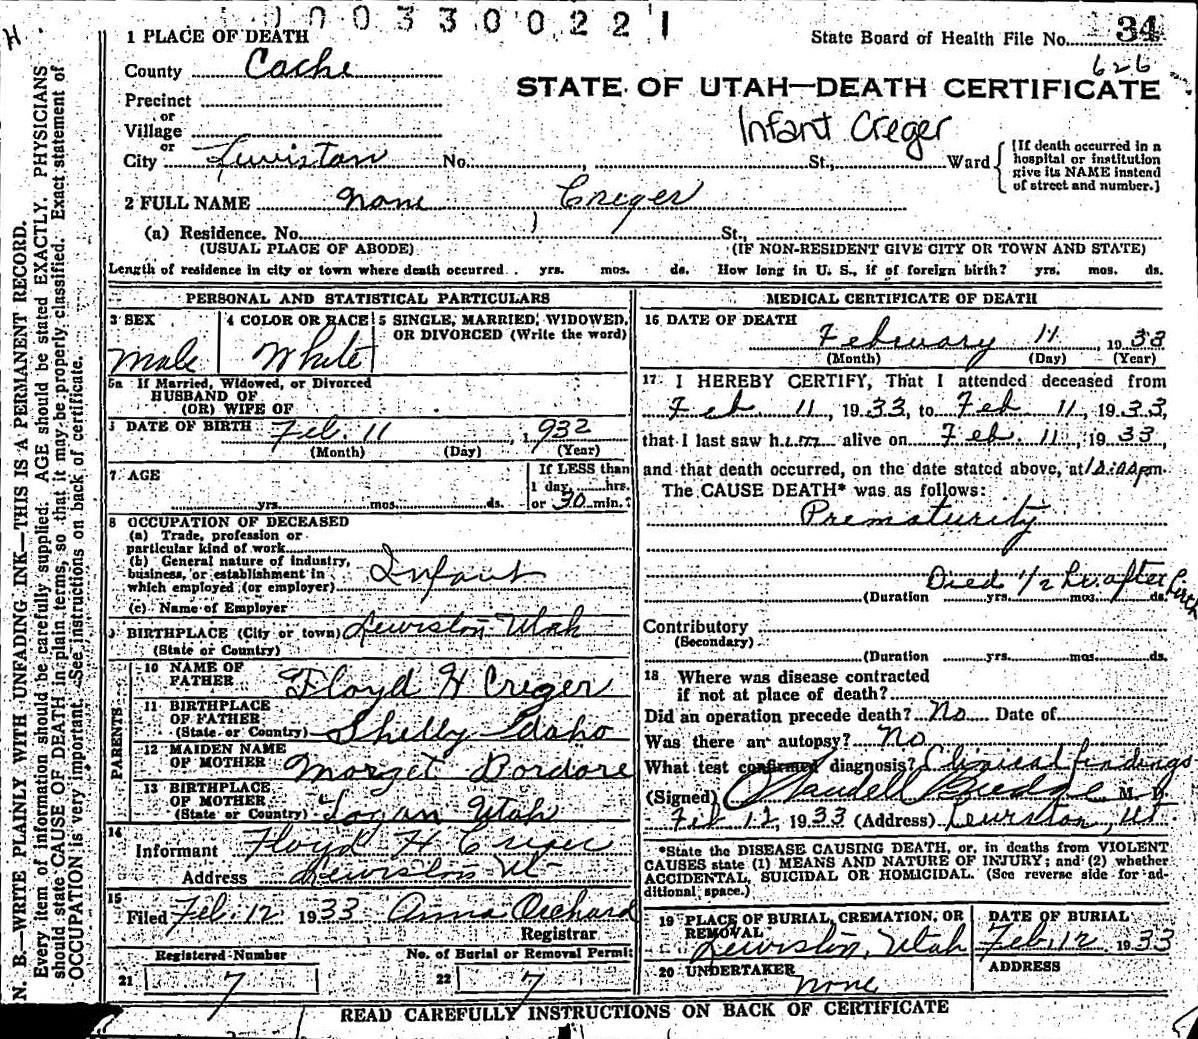 1003300221
H.
1 PLACE OF DEATH
State Board of Health File No. 34
626
County Cache
STATE OF UTAH—DEATH CERTIFICATE
Precinct
or
Village
Infant Creger
or
City Lewiston No. , St., Ward
[If death occurred in a hospital or institution give its NAME instead of street and number.]
2 FULL NAME None Creger
(a) Residence. No. St.,
(USUAL PLACE OF ABODE) (IF NON-RESIDENT GIVE CITY OR TOWN AND STATE)
Length of residence in city or town where death occurred yrs. mos. ds. How long in U. S., if of foreign birth? yrs. mos. ds.
PERSONAL AND STATISTICAL PARTICULARS
3 SEX
Male
4 COLOR OR RACE
White
5 SINGLE, MARRIED, WIDOWED, OR DIVORCED (Write the word)
5a If Married, Widowed, or Divorced
HUSBAND OF
(OR) WIFE OF
DATE OF BIRTH Feb. 11, 1932
(Month) (Day) (Year)
7 AGE
yrs. mos. ds.
If LESS than
1 day, hrs.
or 30 min.
8 OCCUPATION OF DECEASED
(a) Trade, profession or
particular kind of work
(b) General nature of industry,
business, or establishment in
which employed (or employer) Infant
(c) Name of Employer
9 BIRTHPLACE (City or town) Lewiston Utah
(State or Country)
PARENTS
10 NAME OF
FATHER Floyd H Creger
11 BIRTHPLACE
OF FATHER
(State or Country) Shelly Idaho
12 MAIDEN NAME
OF MOTHER Marget
13 BIRTHPLACE
OF MOTHER
(State or Country) Logan Utah
14
Informant Floyd H Creger
Address Lewiston Ut
15
Filed Feb. 12 1933 Anna Orchard
Registrar
Registered Number No. of Burial or Removal Permit
21 7 22 7
MEDICAL CERTIFICATE OF DEATH
16 DATE OF DEATH
February 11 1933
(Month) (Day) (Year)
17 I HEREBY CERTIFY, That I attended deceased from
Feb 11, 1933, to Feb 11, 1933,
that I last saw him alive on Feb. 11, 1933,
and that death occurred, on the date stated above, at 12:00 pm.
The CAUSE DEATH* was as follows:
Prematurity
Died 1/2 hr after birth
(Duration yrs. mos. ds.
Contributory
(Secondary)
(Duration yrs. mos. ds.
18 Where was disease contracted
if not at place of death?
Did an operation precede death? No Date of
Was there an autopsy? No
What test confirmed diagnosis? Clinical findings
(Signed) Budge M. D.
Feb 12, 1933 (Address) Lewiston, Ut.
*State the DISEASE CAUSING DEATH, or, in deaths from VIOLENT
CAUSES state (1) MEANS AND NATURE OF INJURY; and (2) whether
ACCIDENTAL, SUICIDAL OR HOMICIDAL. (See reverse side for ad-
ditional space.)
19 PLACE OF BURIAL, CREMATION, OR
REMOVAL
Lewiston, Utah
DATE OF BURIAL
Feb. 12 1933
20 UNDERTAKER
none
ADDRESS
READ CAREFULLY INSTRUCTIONS ON BACK OF CERTIFICATE
N. B.—WRITE PLAINLY WITH UNFADING INK—THIS IS A PERMANENT RECORD.
Every item of information should be carefully supplied. AGE should be stated EXACTLY. PHYSICIANS
should state CAUSE OF DEATH in plain terms, so that it may be properly classified. Exact statement of
OCCUPATION is very important. See instructions on back of certificate.